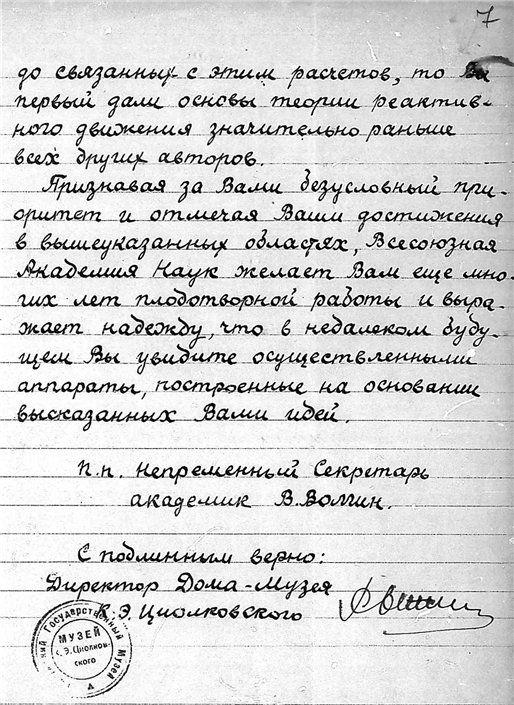 7
до связанных с этим расчетов, то Вы
первый дали основы теории реактив-
ного движения значительно раньше
всех других авторов.
Признавая за Вами безусловный при-
оритет и отмечая Ваши достижения
в вышеуказанных областях, Всесоюзная
Академия Наук желает Вам еще мно-
гих лет плодотворной работы и выра-
жает надежду, что в недалеком буду-
щем Вы увидите осуществленными
аппараты, построенные на основании
высказанных Вами идей.
п.п. Непременный Секретарь
академик В.Волгин.
С подлинным верно:
Директор Дома-Музея
К.Э.Циолковского
Государственный Музей
МУЗЕЙ
К.Э.Циолков-
ского